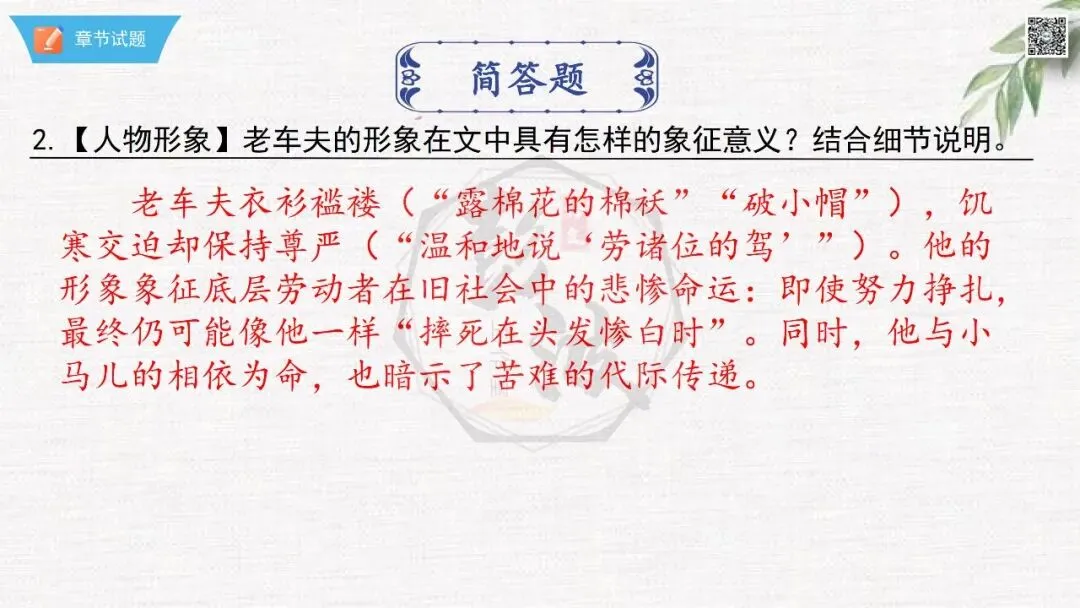 章节试题
简答题
2.【人物形象】老车夫的形象在文中具有怎样的象征意义？结合细节说明。
老车夫衣衫褴褛（“露棉花的棉袄”“破小帽”），饥
寒交迫却保持尊严（“温和地说‘劳诸位的驾’”）。他的
形象象征底层劳动者在旧社会中的悲惨命运：即使努力挣扎，
最终仍可能像他一样“摔死在头发惨白时”。同时，他与小
马儿的相依为命，也暗示了苦难的代际传递。